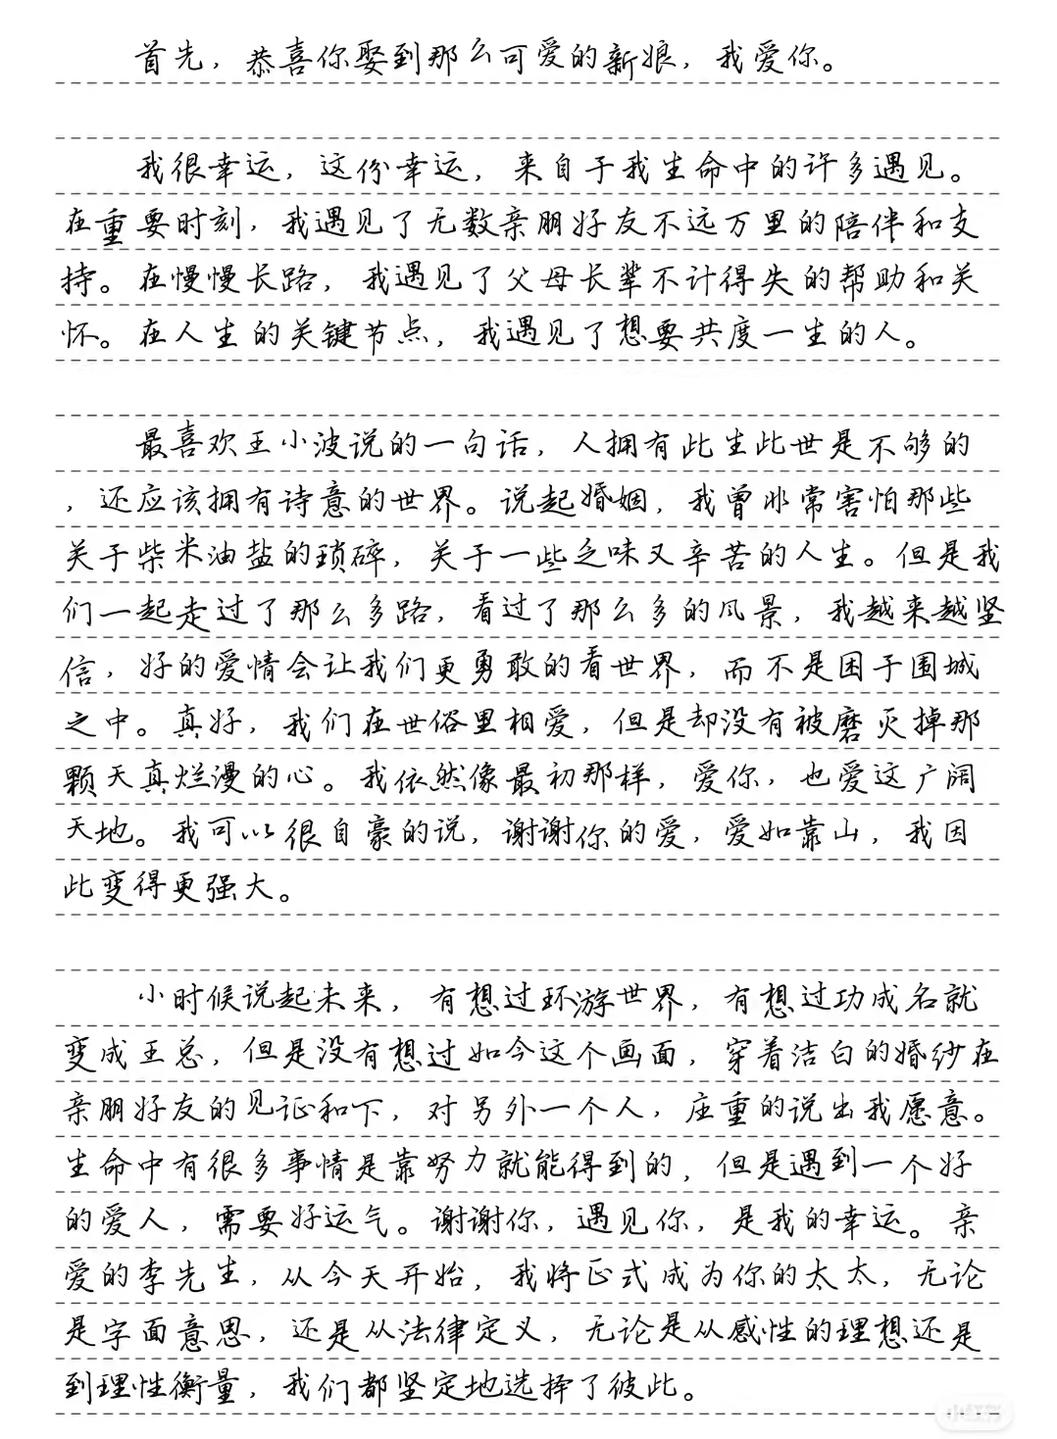 首先，恭喜你娶到那么可爱的新娘，我爱你。
我很幸运，这份幸运，来自于我生命中的许多遇见。
在重要时刻，我遇见了无数亲朋好友不远万里的陪伴和支
持。在慢慢长路，我遇见了父母长辈不计得失的帮助和关
怀。在人生的关键节点，我遇见了想要共度一生的人。
最喜欢王小波说的一句话，人拥有此生此世是不够的
，还应该拥有诗意的世界。说起婚姻，我曾非常害怕那些
关于柴米油盐的琐碎，关于一些乏味又辛苦的人生。但是我
们一起走过了那么多路，看过了那么多的风景，我越来越坚
信，好的爱情会让我们更勇敢的看世界，而不是困于围城
之中。真好，我们在世俗里相爱，但是却没有被磨灭掉那
颗天真烂漫的心。我依然像最初那样，爱你，也爱这广阔
天地。我可以很自豪的说，谢谢你的爱，爱如靠山，我因
此变得更强大。
小时候说起未来，有想过环游世界，有想过功成名就
变成王总，但是没有想过如今这个画面，穿着洁白的婚纱在
亲朋好友的见证和下，对另外一个人，庄重的说出我愿意。
生命中有很多事情是靠努力就能得到的，但是遇到一个好
的爱人，需要好运气。谢谢你，遇见你，是我的幸运。亲
爱的李先生，从今天开始，我将正式成为你的太太，无论
是字面意思，还是从法律定义，无论是从感性的理想还是
到理性衡量，我们都坚定地选择了彼此。
小红书